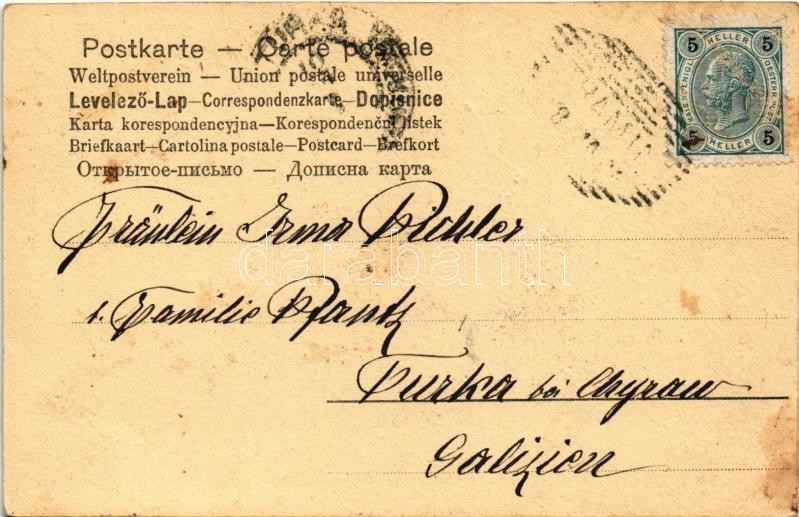 Postkarte — Carte postale
Weltpostverein — Union postale universelle
Levelező-Lap—Correspondenzkarte—Dopisnice
Karta korespondencyjna—Korespondenční lístek
Briefkaart—Cartolina postale—Postcard—Brefkort
Открытое-письмо — Дописна карта
5 HELLER 5
5 HELLER 5
Fräulein Irma Pichler
Familie Pfantz
Turka bei Chyrow
Galizien
darabanth